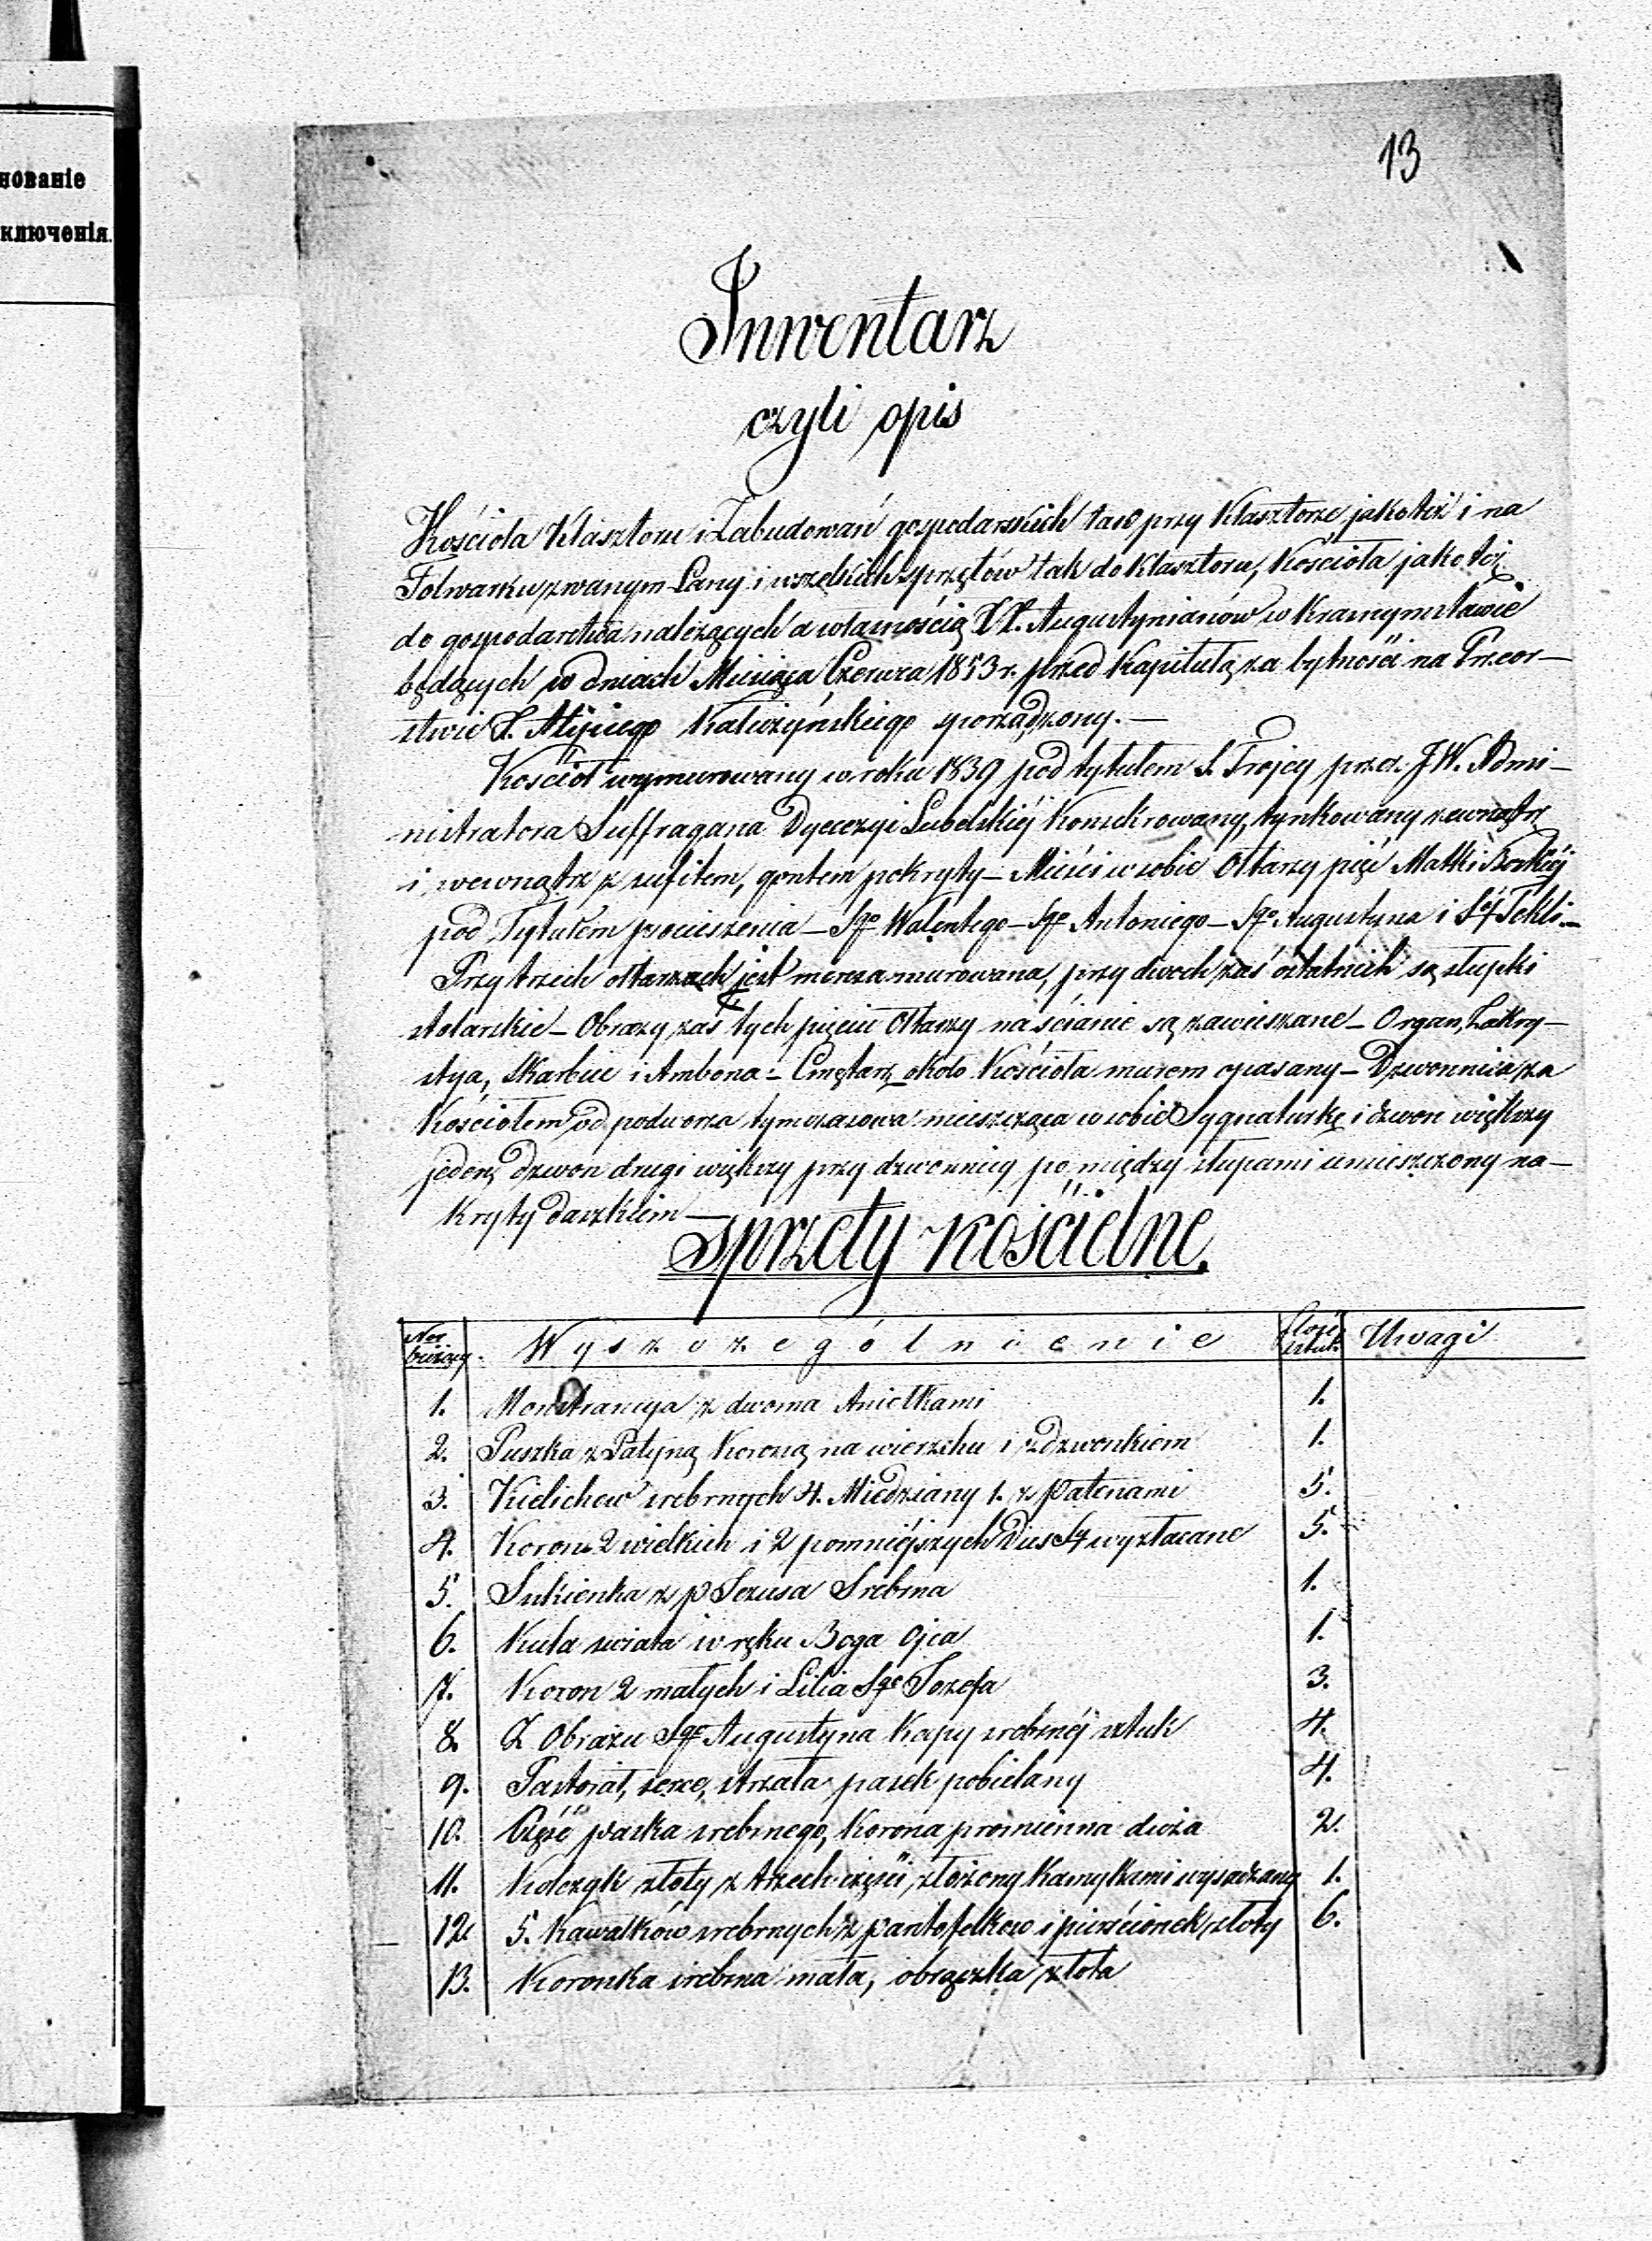 нованіе
ключенія.
13
Inwentarz
czyli opis
Kościoła Klasztoru i Zabudowań gospodarskich tak przy Klasztorze jakoteż i na
Folwarku zwanym Łany i wszelkich sprzętów tak do Klasztoru, Kościoła jakoteż
do gospodarstwa należących a własnością XX. Augustynianów w Krasnymstawie
będących w dniach Miesiąca Czerwca 1853 r. przed Kapitułą za bytności na Przeor-
stwie X. Kaliszyńskiego sporządzony.—
Kościół wymurowany w roku 1839 pod tytułem S. Trojcy przez J.W. Admi-
nistratora Suffragana Dyecezyi Lubelskiéj Konsekrowany, tynkowany zewnątrz
i wewnątrz z sufitem, gontem pokryty — Mieści w sobie Ołtarzy pięć Matki Boskiéj
pod Tytułem pocieszenia — Sgo Walentego — Sgo Antoniego — Sgo Augustyna i Séj Tekli.—
Przy trzech ołtarzach jest menza murowana, przy dwoch zaś ostatnich są słupki
stolarskie — Obrazy zaś tych pięciu Ołtarzy na ścianie są zawieszane — Organ, Zakry-
stya, Skarbiec i Ambona — Cmętarz około Kościoła murem opasany — Dzwonnica za
Kościołem od podworza tymczasowa mieszcząca w sobie Sygnaturkę i dzwon większy
jeden, dzwon drugi większy przy dzwonnicy pomiędzy słupami umieszczony na-
kryty daszkiem —
Sprzęty kościelne.
Ner bieżący. Wyszczególnienie Ilość sztuk Uwagi
1. Monstrancya z dwoma Aniołkami 1.
2. Puszka z Patyną Koroną na wierzchu i z dzwonkiem 1.
3. Kielichow srebrnych 4. Miedziany 1. z Patenami 5.
4. Koron 2 wielkich i 2 pomniéjszych wyzłacane 5.
5. Sukienka z P Jezusa Srebrna 1.
6. Kula swiata w ręku Boga Ojca 1.
7. Koron 2 małych i Lilia Sgo Jozefa 3.
8. Z Obrazu Sgo Augustyna Kapy srebrnéj sztuk 4.
9. Pastorał, serce, strzała pasek pobielany 4.
10. Część paska srebrnego, Korona promienna duża 2.
11. Kolczyk złoty z trzech części złożony Kamykami wysadzany 1.
12. 5. Kawałków srebrnych z pantofelkow i pierścionek złoty 6.
13. Koronka srebrna mała, obrączka złota